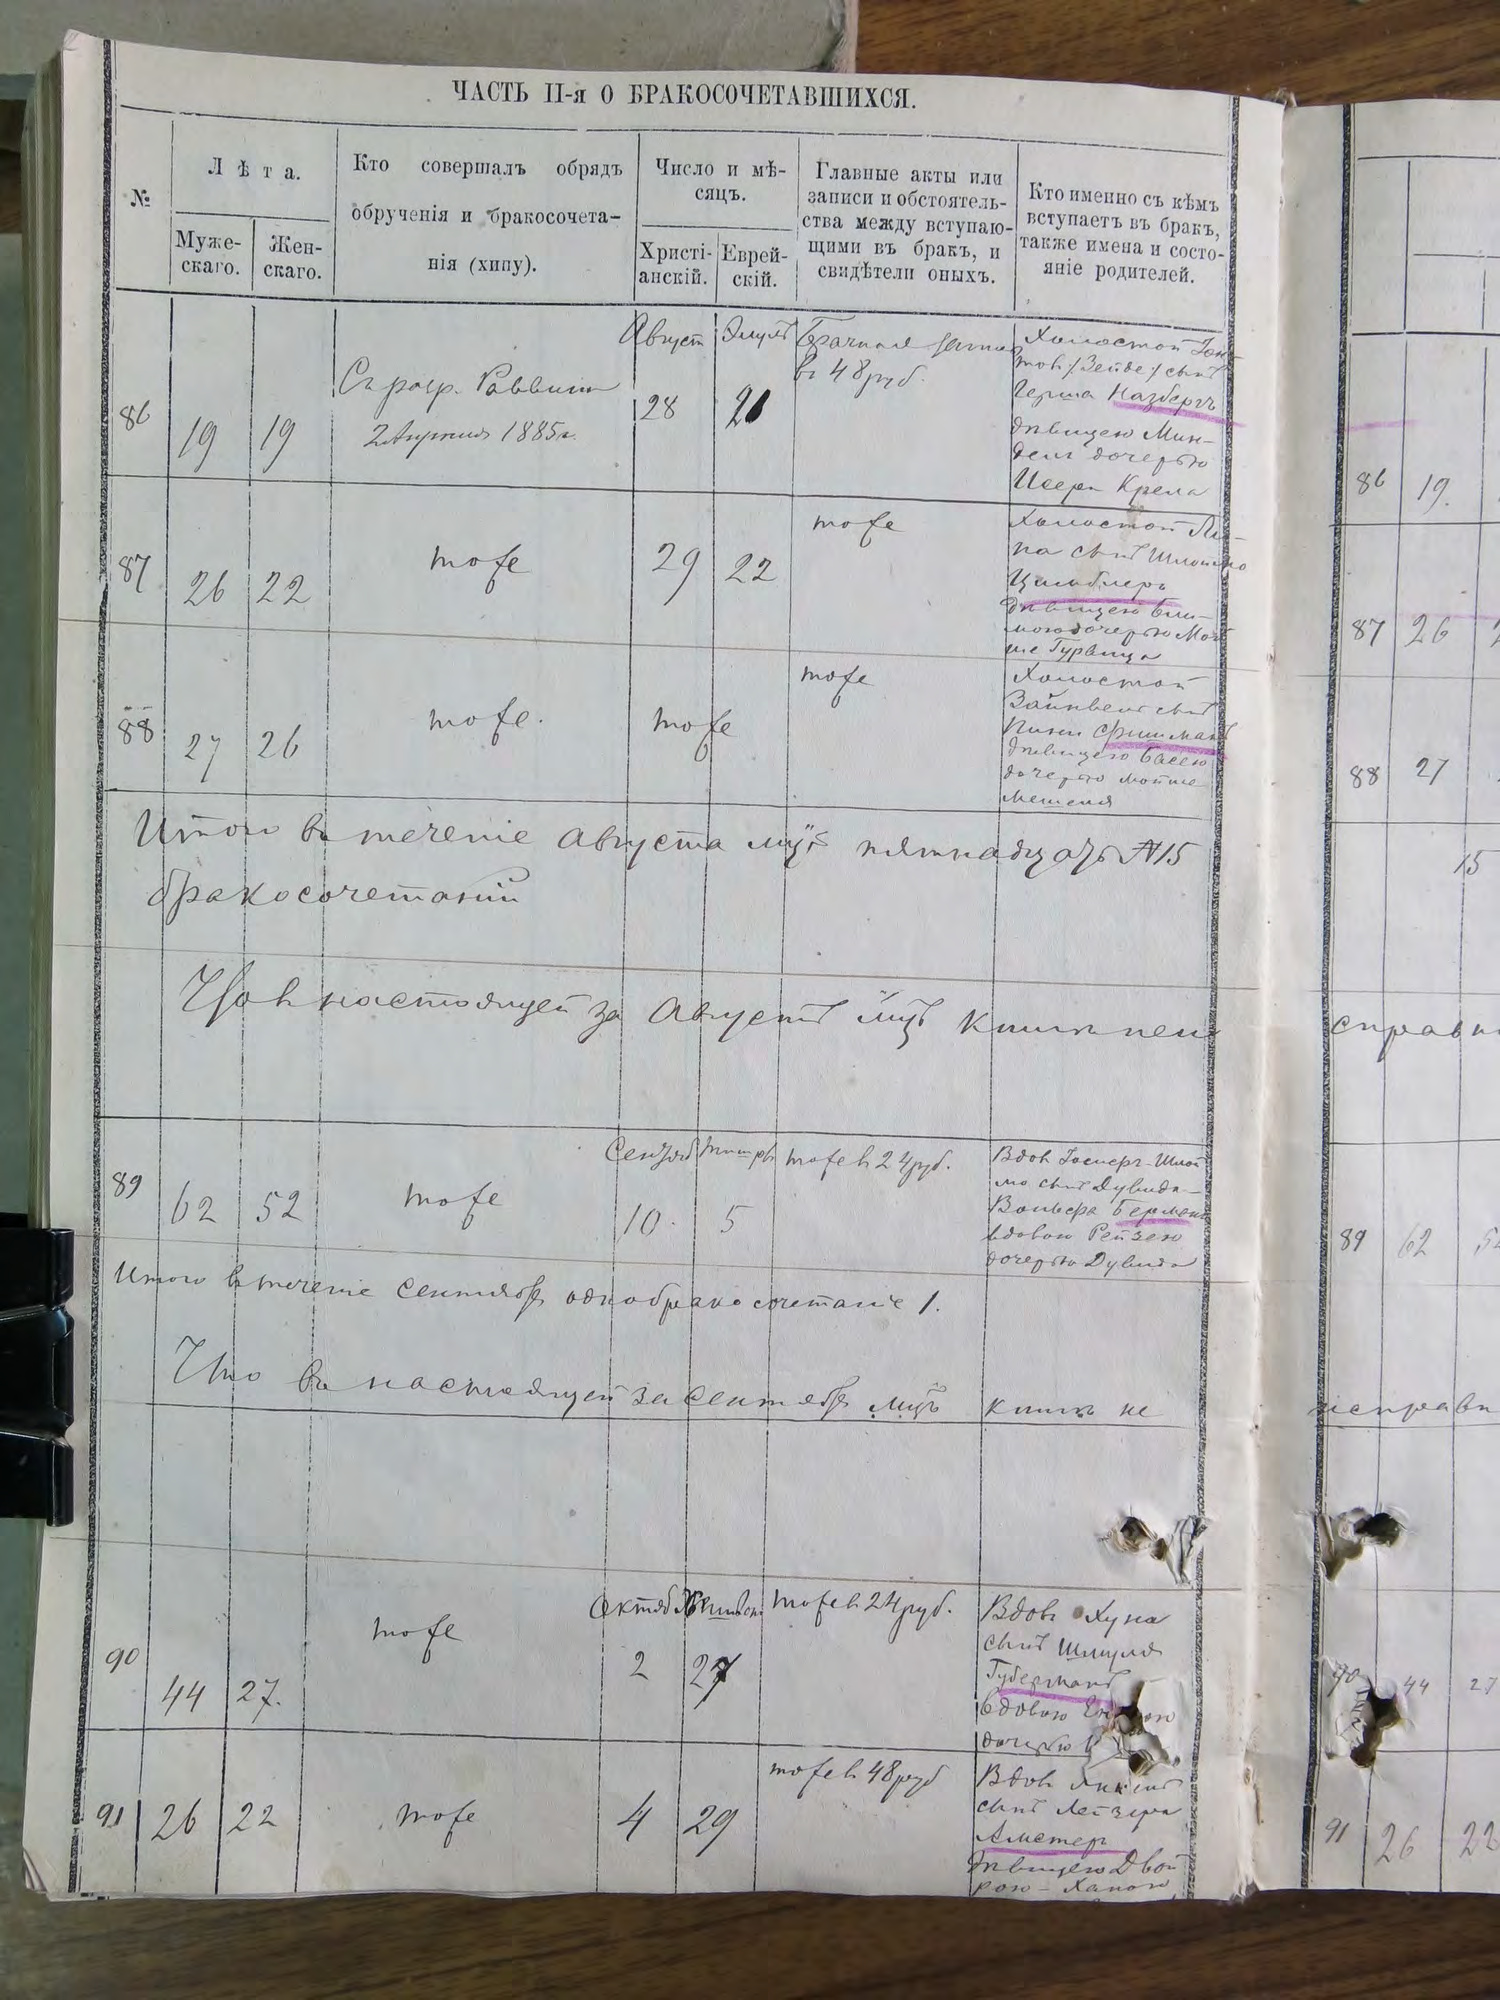 ЧАСТЬ II-я О БРАКОСОЧЕТАВШИХСЯ.
№
Лѣта.
Муже-
скаго.
Жен-
скаго.
Кто совершалъ обрядъ
обрученія и бракосочета-
нія (хипу).
Число и мѣ-
сяцъ.
Христі-
анскій.
Еврей-
скій.
Главные акты или
записи и обстоятель-
ства между вступаю-
щими въ бракъ, и
свидѣтели оныхъ.
Кто именно съ кѣмъ
вступаетъ въ бракъ,
также имена и состо-
яніе родителей.
86
19
19
Съ разр. Раввина
2 Апреля 1885 г.
Август
28
Элулъ
21
Брачная запись
въ 48 руб.
Холостой
/Зейде/ сынъ
Герша Назбергъ
дѣвицею Мин-
дель дочерью
Иосера Крела
87
26
22
тоже
29
22
тоже
Холостой Ли-
па сынъ Шлойма
Цимблеръ
дѣвицею Бли-
мою дочерью Мой
ше Гурвица
88
27
26
тоже.
тоже
тоже
Холостой
Зайнвель сынъ
Пини Фишманъ
дѣвицею Басею
дочерью Мойше
Мешеля
Итого въ теченіе Августа мцѣ пятнадцать №15
бракосочетаній
Что въ настоящей за Августъ мцъ книги неи
89
62
52
тоже
Сентяб
10.
Тишри
5
тоже въ 24 руб.
Вдов. Иосперъ-Шлой
мо сынъ Дувида-
Вольфа Берманъ
вдовою Рейзею
дочерью Дувида
Итого въ теченіе Сентября одно бракосочетаніе 1.
Что въ настоящей за Сентябрь мцъ книги не
90
44
27.
тоже
Октяб
2
27
тоже въ 24 руб.
Вдов. Хуна
сынъ Шмуля
Губерманъ
вдовою
дочерью
91
26
22
тоже
4
29
тоже въ 48 руб
Вдов. Янкель
сынъ Лейзера
Амстеръ
дѣвицею Двой
рою-Ханою
86
19.
87
26
88
27
15
справн
89
62
исправн
90
44
27
91
26
22